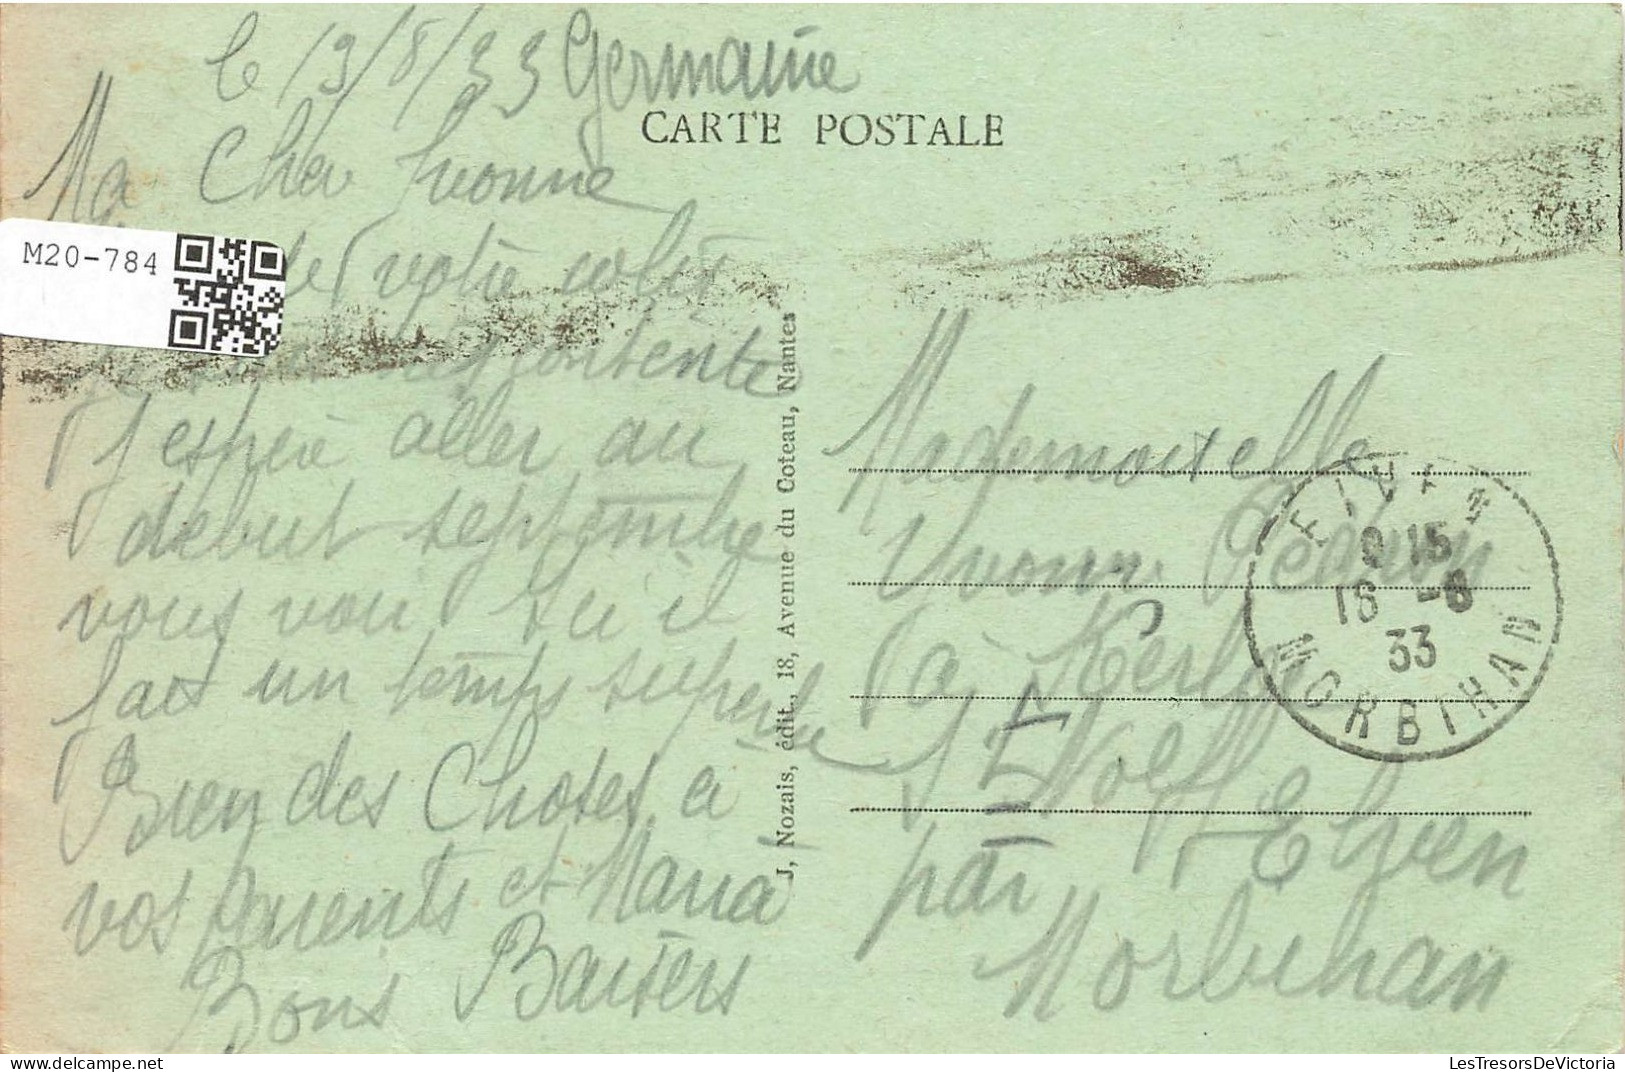 le 13/8/33 Germaine
CARTE POSTALE
Ma Cher Yvonne
M20-784
votre colis
contente
J espere aller au
debut septembre
vous voir Ici il
fait un temps superbe
Bien des Choses a
vos parents et Maria
Bons Baisers
J. Nozais, édit., 18, Avenue du Coteau, Nantes
Mademoiselle
Yvonne
à
Elven
par
Morbihan
ELVEN
9 15
16 -8
33
MORBIHAN
LesTresorsDeVictoria